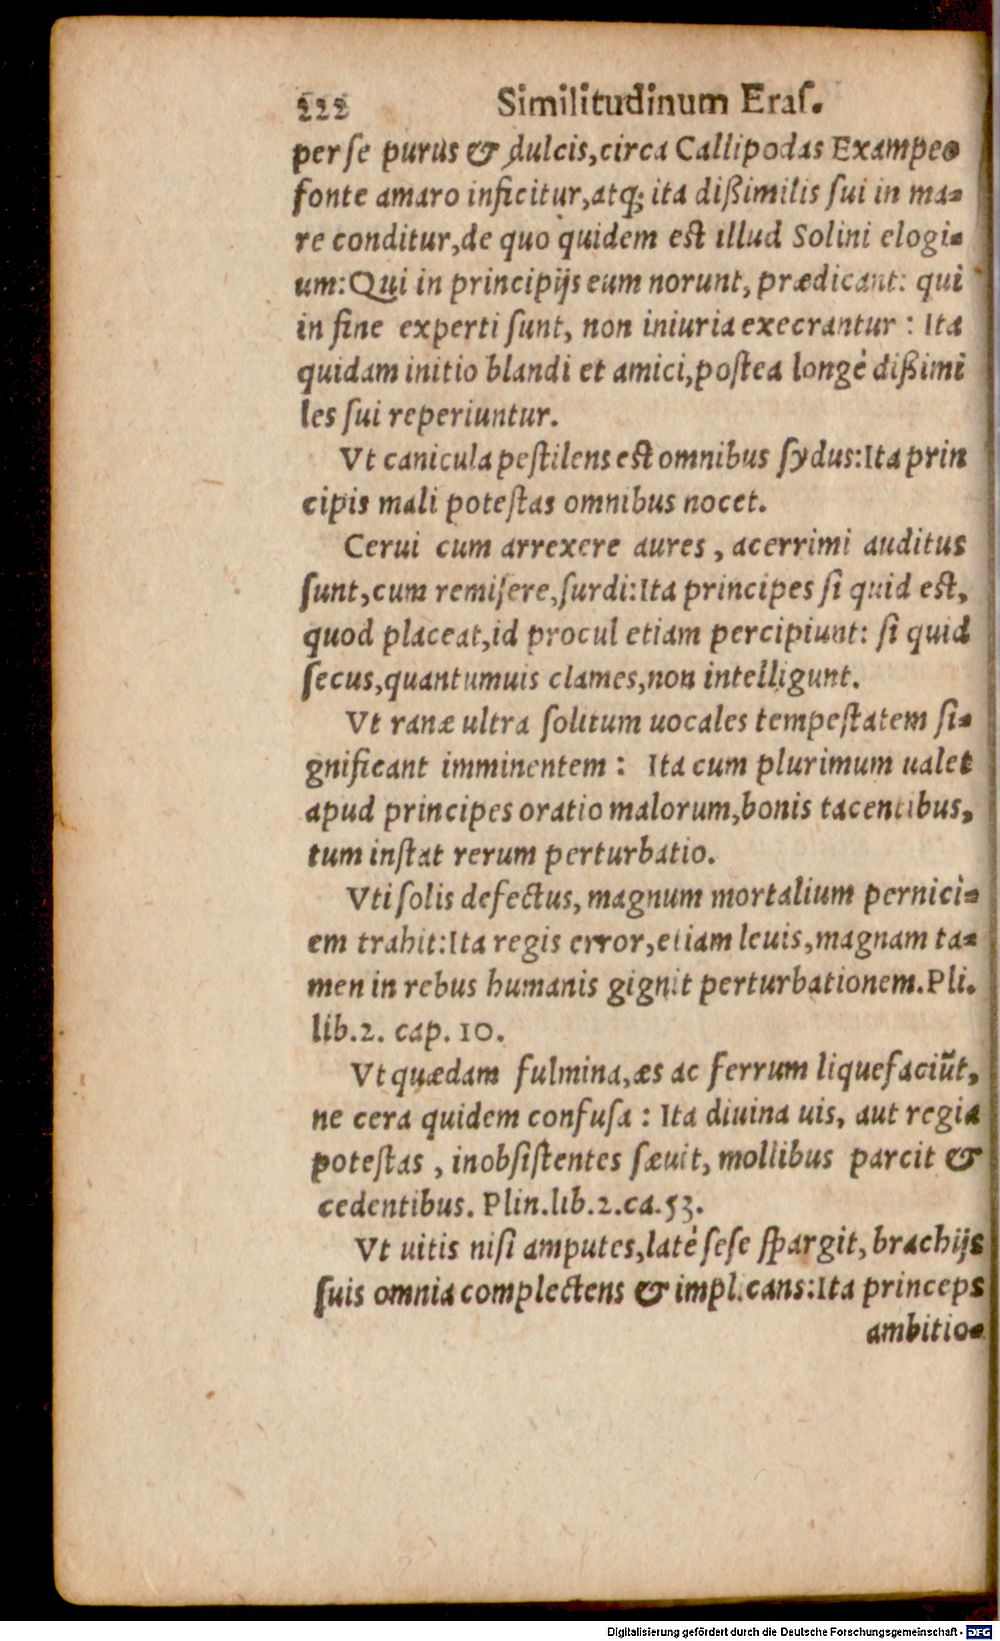 222 Similitudinum Eraſ.
per ſe purus & dulcis,circa Callipodas Exampeo
fonte amaro inficitur,atq; ita dißimilis ſui in ma-
re conditur,de quo quidem est illud Solini elogi-
um:Qui in principijs eum norunt, prædicant: qui
in fine experti ſunt, non iniuria execrantur : Ita
quidam initio blandi et amici,poſtea longè dißimi
les ſui reperiuntur.
Vt canicula peſtilens est omnibus ſydus:Ita prin
cipis mali poteſtas omnibus nocet.
Cerui cum arrexere aures , acerrimi auditus
ſunt,cum remiſere,ſurdi:Ita principes ſi quid est,
quod placeat,id procul etiam percipiunt: ſi quid
ſecus,quantumuis clames,non intelligunt.
Vt ranæ ultra ſolitum uocales tempeſtatem ſi-
gnificant imminentem : Ita cum plurimum ualet
apud principes oratio malorum,bonis tacentibus,
tum inſtat rerum perturbatio.
Vti ſolis defectus, magnum mortalium pernici-
em trahit:Ita regis error,etiam leuis,magnam ta-
men in rebus humanis gignit perturbationem.Pli.
lib.2. cap. 10.
Vt quædam fulmina,æs ac ferrum liquefaciũt,
ne cera quidem confuſa : Ita diuina uis, aut regia
poteſtas , in obſiſtentes ſæuit, mollibus parcit &
cedentibus. Plin.lib.2.ca.53.
Vt uitis niſi amputes,latè ſeſe ſpargit, brachijs
ſuis omnia complectens & implicans:Ita princeps
ambitio-
Digitalisierung gefördert durch die Deutsche Forschungsgemeinschaft - DFG